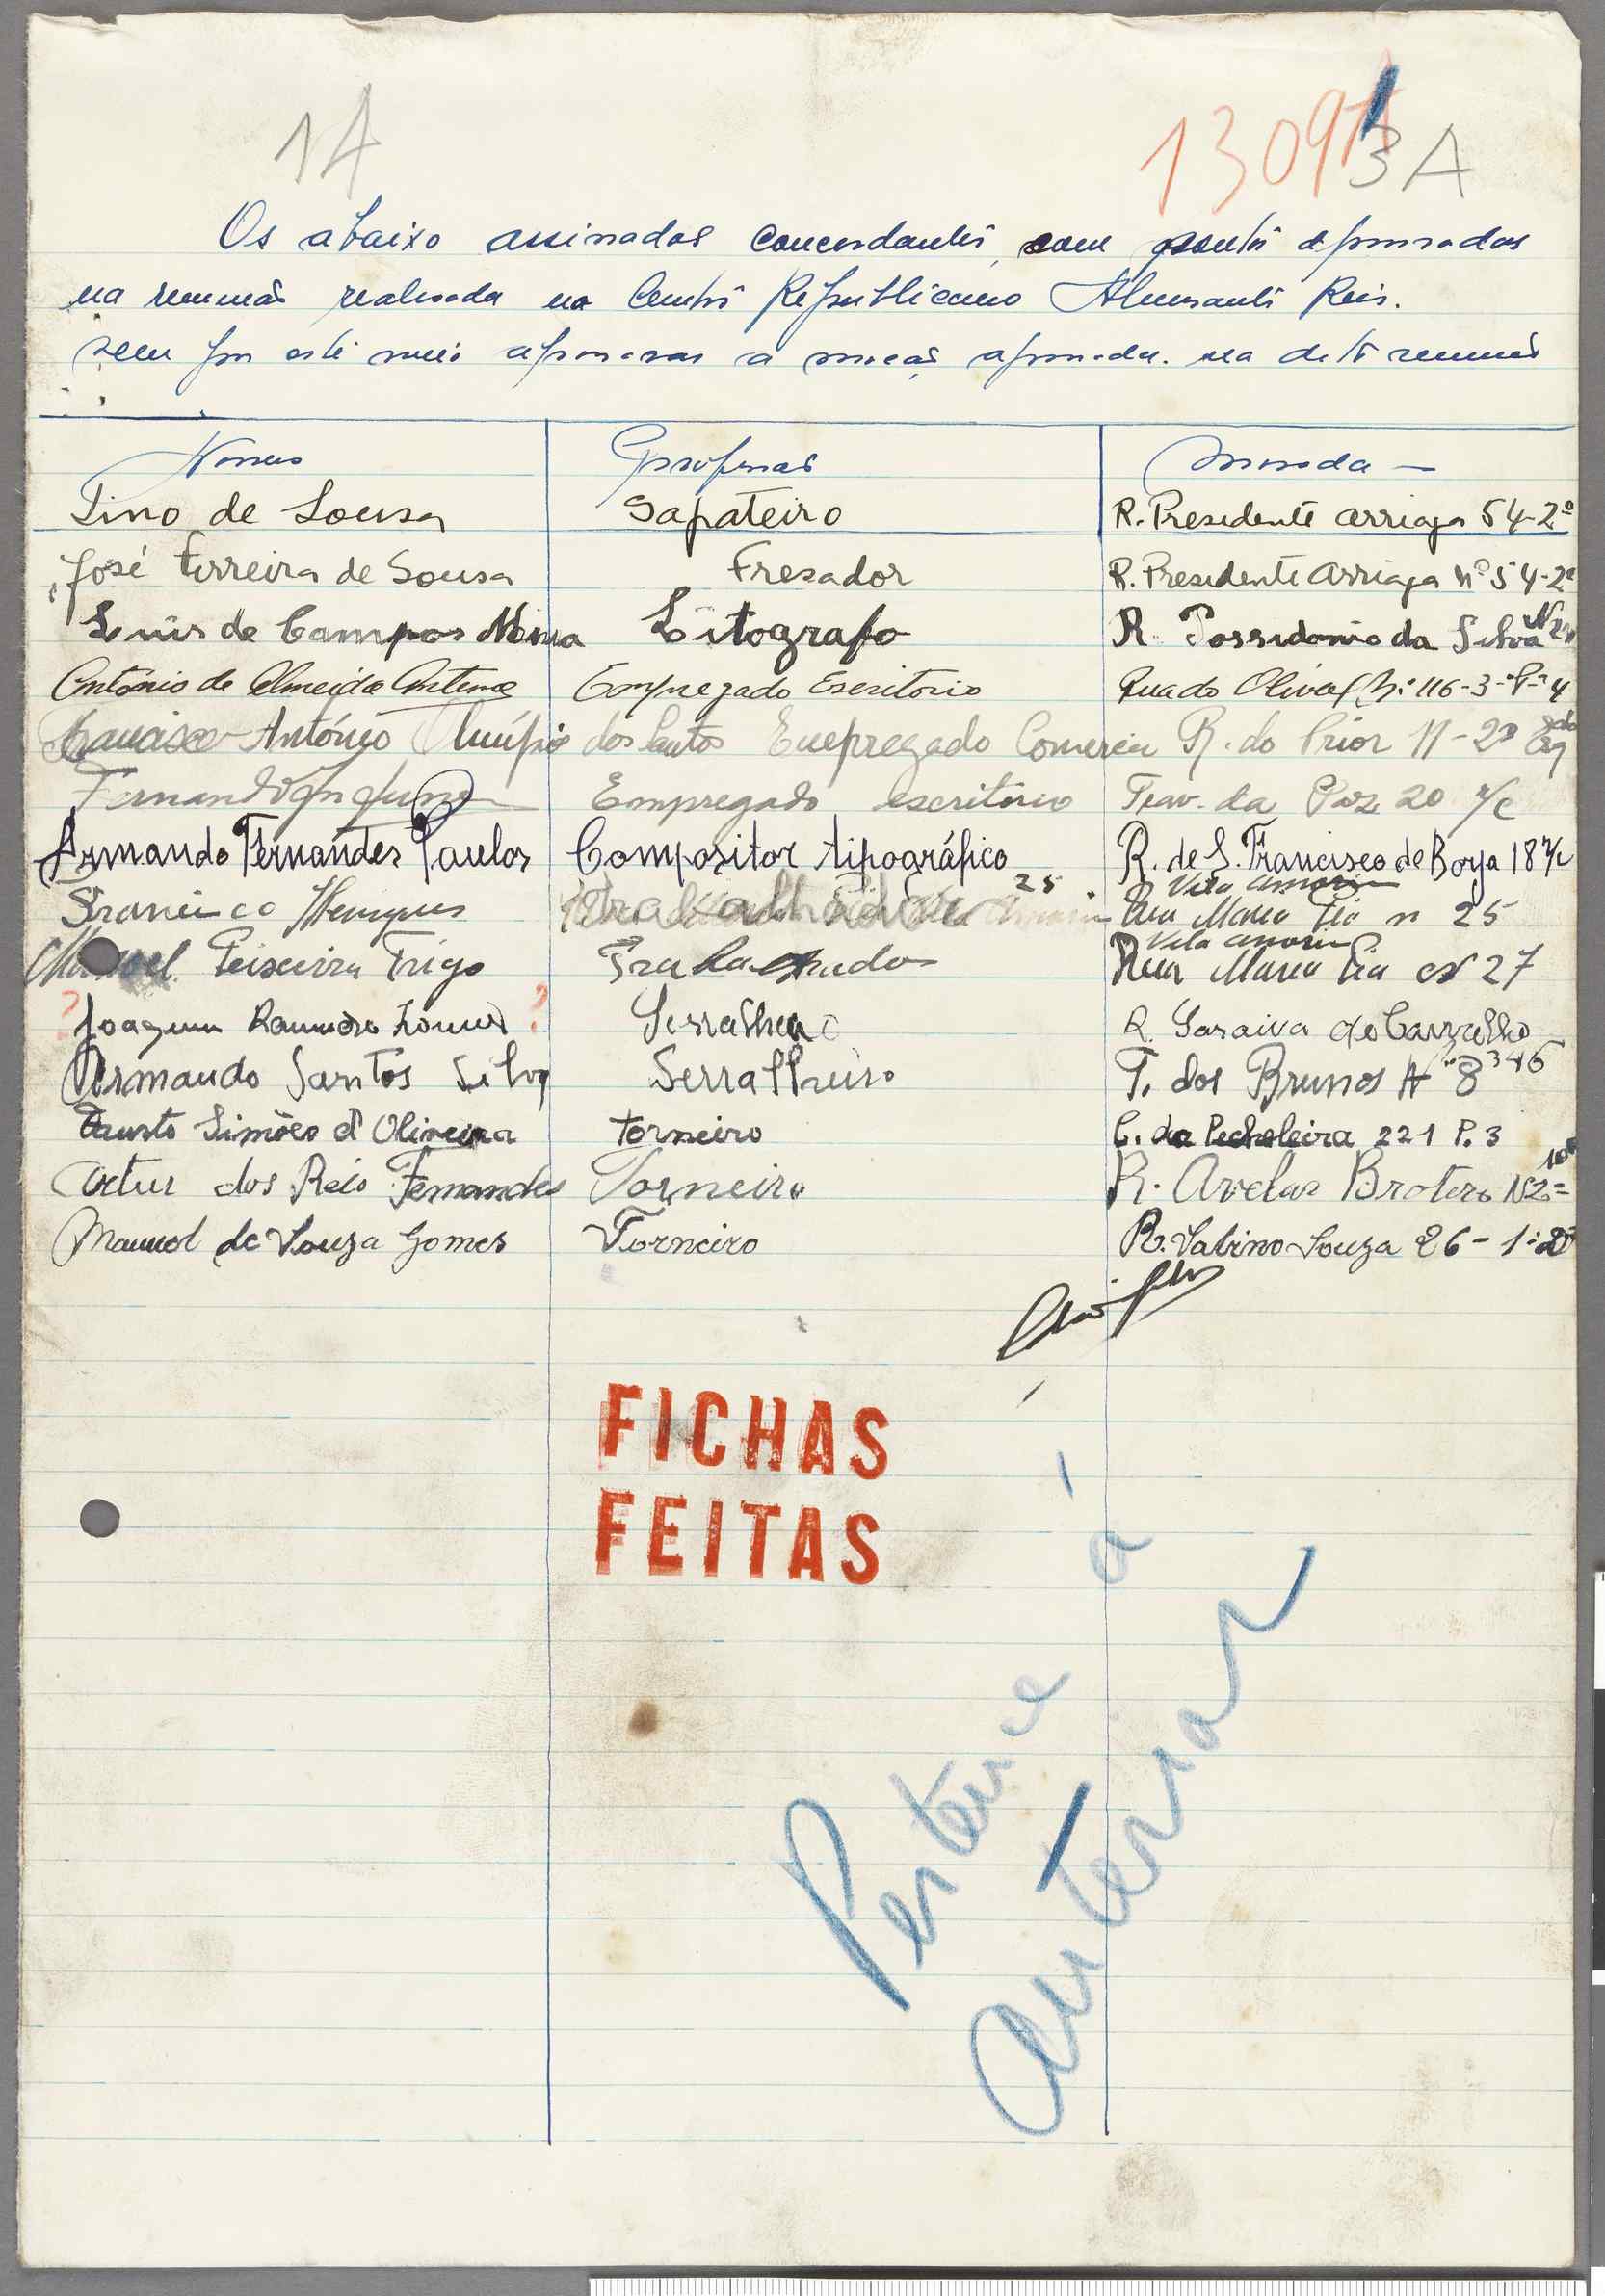 14
1309 3A
Os abaixo assinados concordantes, com pontos aprovados
na reunião realisada no Centro Republicano Almirante Reis.
vem por este meio aprovar a moção aprovada na dita reunião
Nomes Profissões Morada -
Tino de Sousa Sapateiro R. Presidente Arriaga 54-2º
José Ferreira de Sousa Fresador R. Presidente Arriaga Nº 54-2º
Luis de Campos Litografo R. Possidonio da Silva
António de Almeida Antema Empregado Escritório Rua do Olival Nº 116-3º-P-4
Francisco António Olímpio dos Santos Empregado Comercio R. do Prior 11-2º Esq
Fernando Empregado escritório Trav. da Paz 20 r/c
Armando Fernandes Paulos Compositor tipográfico R. de S. Francisco de Borja 18 r/c
25 Vila Amorim
Francisco Henriques Trabalhador Rua Maria Pia n 25
Vila Amorim
Manoel Teixeira Trigo Trabalhador Rua Maria Pia nº 27
? Joaquim Ramos ? Serralheiro R. Saraiva de Carvalho
Armando Santos Silva Serralheiro T. dos Brunos Nº 8
Fausto Simões d'Oliveira torneiro C. da Pecholeira 221 P. 3
Artur dos Reis Fernandes Torneiro R. Avelar Brotero
Manuel de Souza Gomes Torneiro R. Sabino Souza 26-1º
FICHAS
FEITAS
Pertence á
anterior